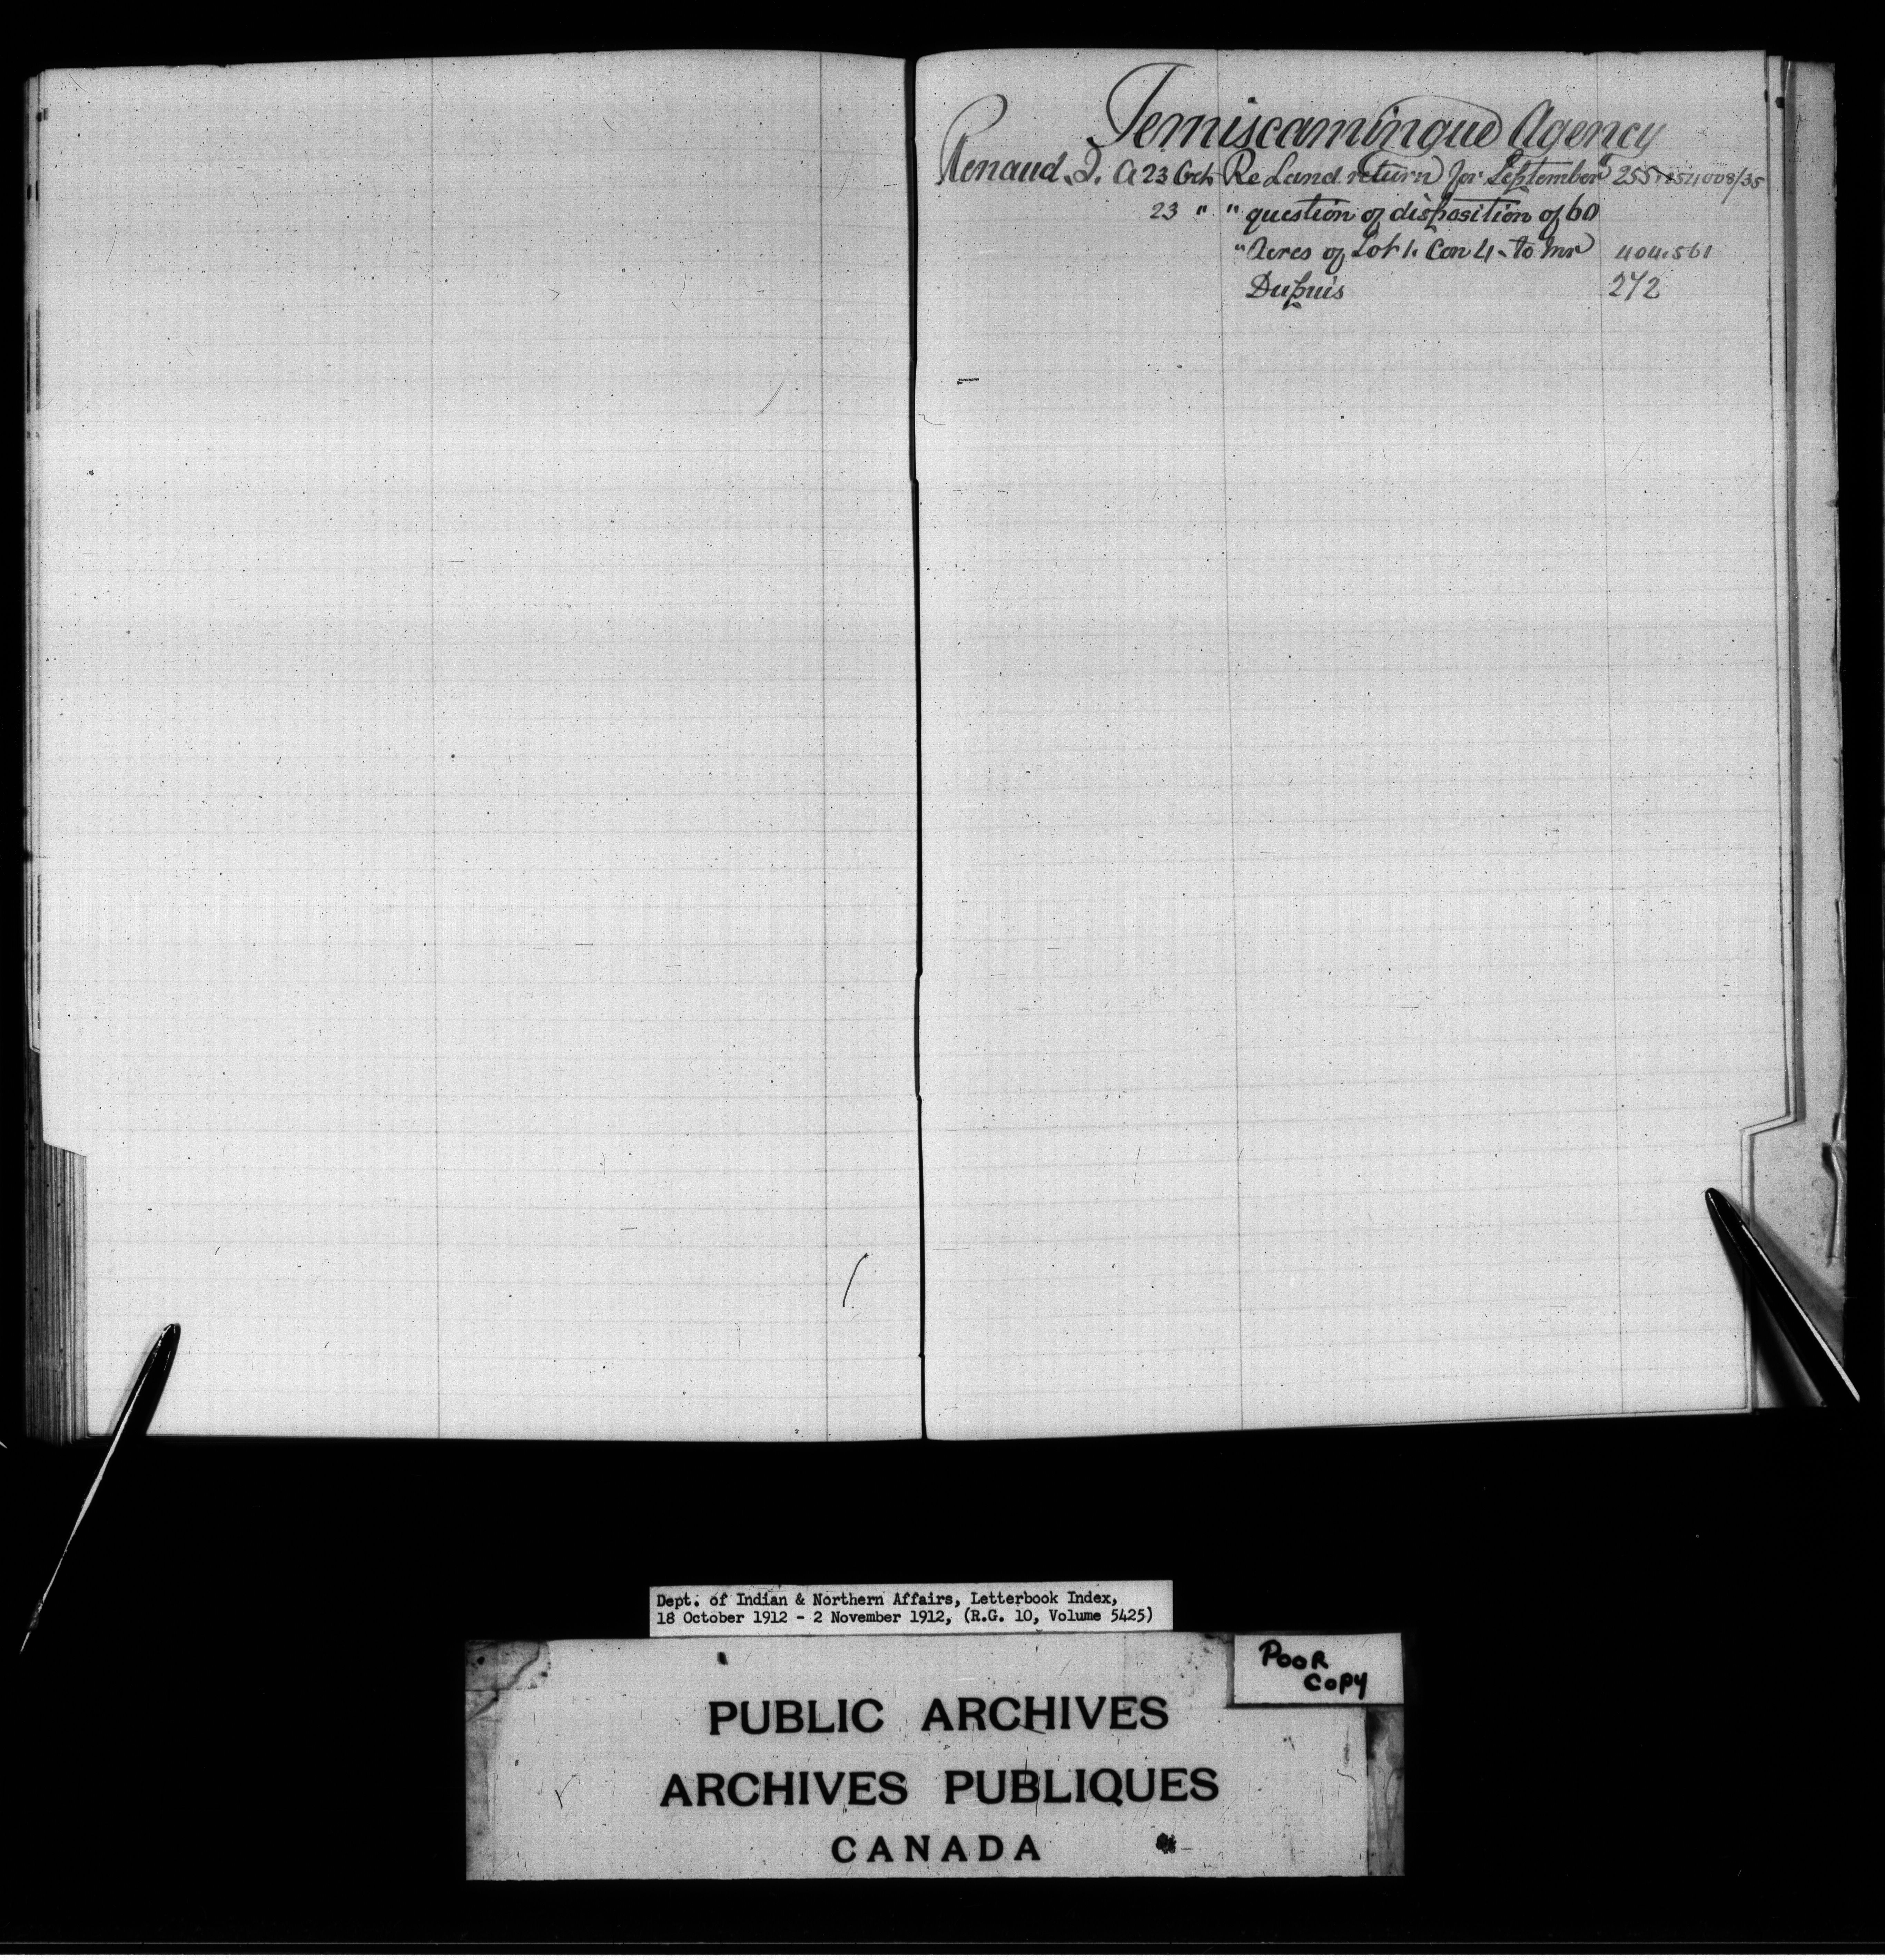 Temiscamingue Agency
Renaud. J. A 23 Oct Re Land return for September 255 254008/35
23 " " question of disposition of 60
" Acres of Lot 1. Con 4 - to Mr 404.561
Dupuis 272
Dept. of Indian & Northern Affairs, Letterbook Index,
18 October 1912 - 2 November 1912, (R.G. 10, Volume 5425)
POOR
COPY
PUBLIC ARCHIVES
ARCHIVES PUBLIQUES
CANADA